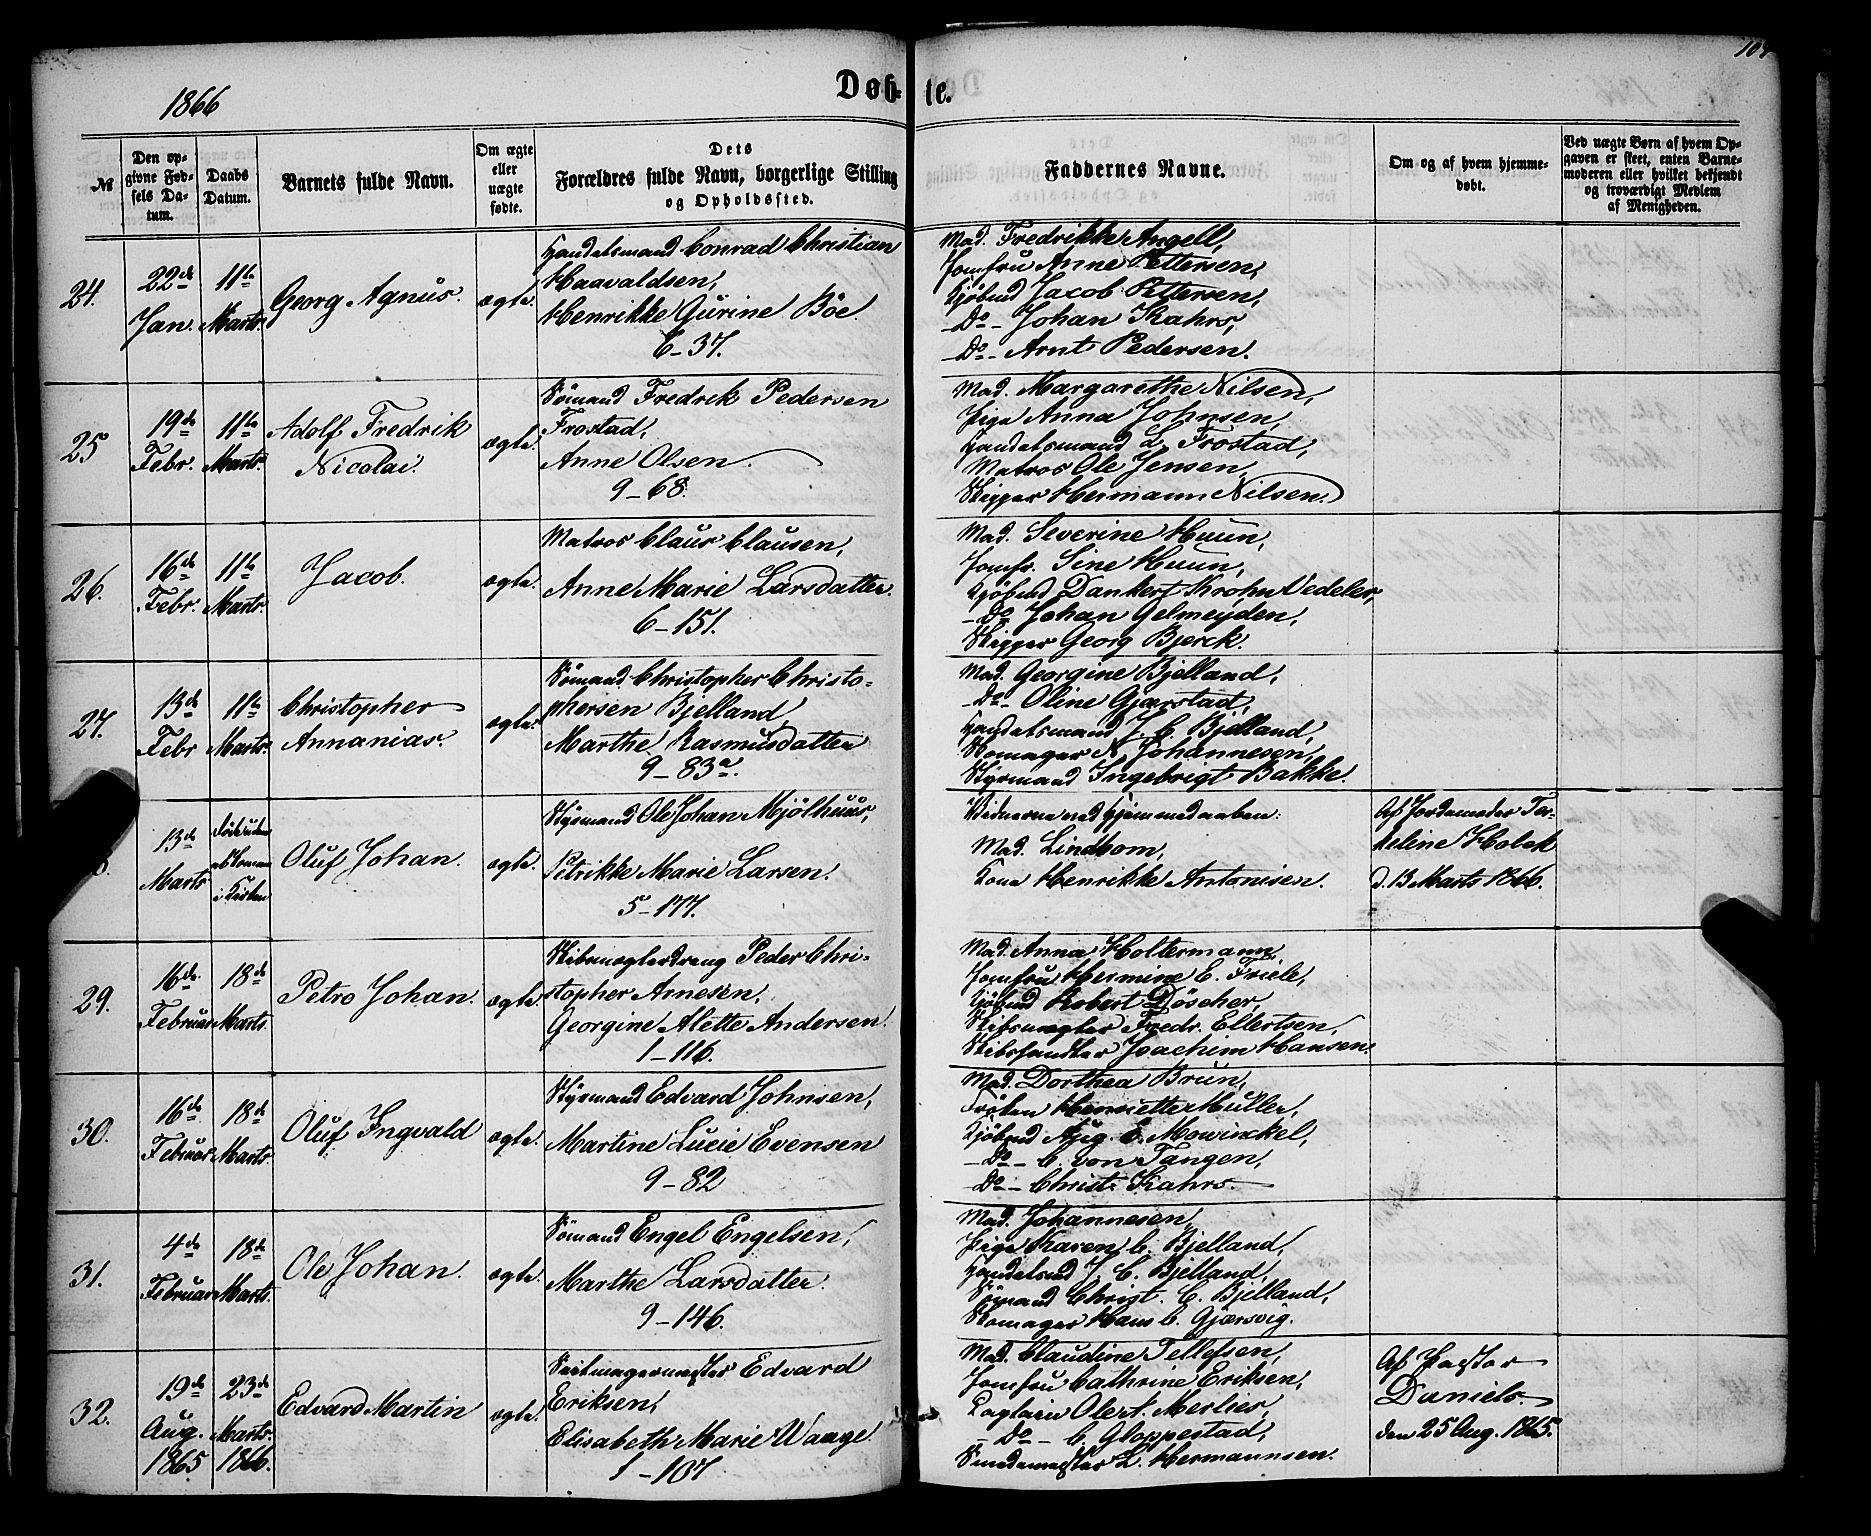 1866
Døb-
te.
109
№
Den op-
givne Fød-
sels Da-
tum.
Daabs
Datum.
Barnets fulde Navn.
Om ægte
eller
uægte
fødte.
Dets
Forældres fulde Navn, borgerlige Stilling
og Opholdssted.
Faddernes Navne.
Om og af hvem hjemme-
døbt.
Ved uægte Børn af hvem Op-
gaven er skeet, enten Barne-
moderen eller hvilket bekjendt
og troværdigt Medlem
af Menigheden.
24.
22de
Jan.
11te
Marts.
Georg Agnus.
ægte.
Handelsmand Conrad Christian
Haavaldsen,
Henrikke Gurine Böe
6-37.
Mad. Fredrikke Angell,
Jomfru Anne Pettersen,
Kjøbmd Jacob Pettersen,
-Do- Johan Kahrs,
-Do- Arnt Pedersen.
25
19de
Febr.
11te
Marts.
Adolf Fredrik
Nicolai.
ægte.
Sömand Fredrik Pedersen
Frostad,
Anne Olsen.
9-68.
Mad. Margarethe Nilsen,
Pige Anna Johnsen,
Handelsmand L. Frostad,
Matros Ole Jensen,
Skipper Hermann Nilsen.
26.
16de
Febr.
11te
Marts.
Jacob.
ægte.
Matros Claus Clausen,
Anne Marie Larsdatter.
6-151.
Mad. Severine Huun,
Jomfr. Sine Huun,
Kjøbmd Dankert Krohn Vedeler,
-Do Johan Gelmeyden,
Skipper Georg Bjerck.
27.
13de
Febr
11te
Marts.
Christopher
Annanias.
ægte.
Sömand Christopher Christo-
phersen Bjelland,
Marthe Rasmusdatter
9-83a.
Mad. Georgine Bjelland,
-Do- Oline Gjerstad,
Handelsmand J. C. Bjelland,
Skomager N. Johannesen,
Styrmand Ingebrigt Bakke.
8.
13de
Marts
i Kirken
Oluf Johan.
ægte.
Styrmand Ole Johan Mjölhuus,
Petrikke Marie Larsen.
5-177.
Vidnerne ved Hjemmedaaben:
Mad. Lindbom,
Kone Henrikke Antonisen.
Af Jordemoder Tor-
keline Holek
d. 13 Marts 1866.
29.
16de
Februar
18de
Marts.
Petro Johan.
ægte.
Skibsmæglerdreng Peder Chri-
stopher Arnesen,
Georgine Alette Andersen.
1-116.
Mad. Anna Holtermann,
Jomfru Hermine C. Friele,
Kjøbmd Robert Döscher
Skibsmægler Fredr. Ellertsen,
Skibshandler Joachim Hansen.
30.
16de
Februar
18de
Marts.
Oluf Ingvald
ægte.
Styrmand Edvard Johnsen,
Martine Lucie Evensen
9-82
Mad. Dorthea Brun,
Fröken Henriette Müller,
Kjøbmd Aug. E. Mowinckel,
-Do- C. von Tangen,
Do- Christ. Kahrs.
31.
4de
Februar
18de
Marts.
Ole Johan.
ægte.
Sömand Engel Engelsen,
Marthe Larsdatter.
9-146.
Mad. Johannesen,
Pige Karen C. Bjelland,
Handelsmd J. C. Bjelland,
Sömand Christ. C. Bjelland,
Skomager Hans C. Gjærsvig.
32.
19de
Aug.
1865
23de
Marts.
1866.
Edvard Martin
ægte.
Seilmagermester Edvard
Eriksen,
Elisabeth Marie Waage.
1-107
Mad. Claudine Tellefsen,
Jomfru Cathrine Eriksen,
Captain Ole A. Merlies,
-Do- C. Gloppestad,
L. Hermannsen.
Af Pastor
Daniels.
den 25 Aug. 1865.